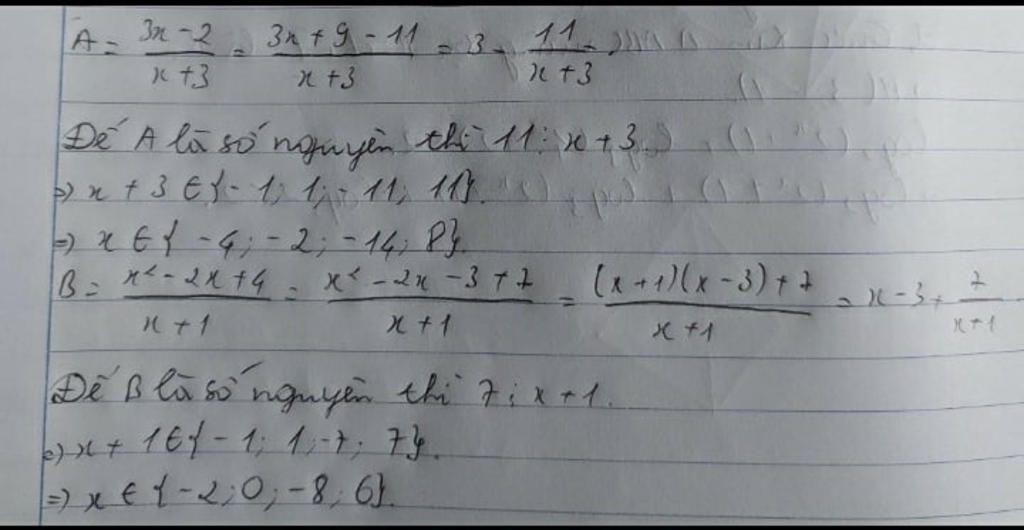 A = (3x - 2)/(x + 3) = (3x + 9 - 11)/(x + 3) = 3 - 11/(x + 3)
Để A là số nguyên thì 11 ⋮ x + 3.
=> x + 3 ∈ {- 1; 1; - 11; 11}.
=> x ∈ { - 4; - 2; - 14; 8}.
B = (x² - 2x + 4)/(x + 1) = (x² - 2x - 3 + 7)/(x + 1) = ((x + 1)(x - 3) + 7)/(x + 1) = x - 3 + 7/(x + 1)
Để B là số nguyên thì 7 ⋮ x + 1.
=> x + 1 ∈ {- 1; 1; - 7; 7}.
=> x ∈ {- 2; 0; - 8; 6}.